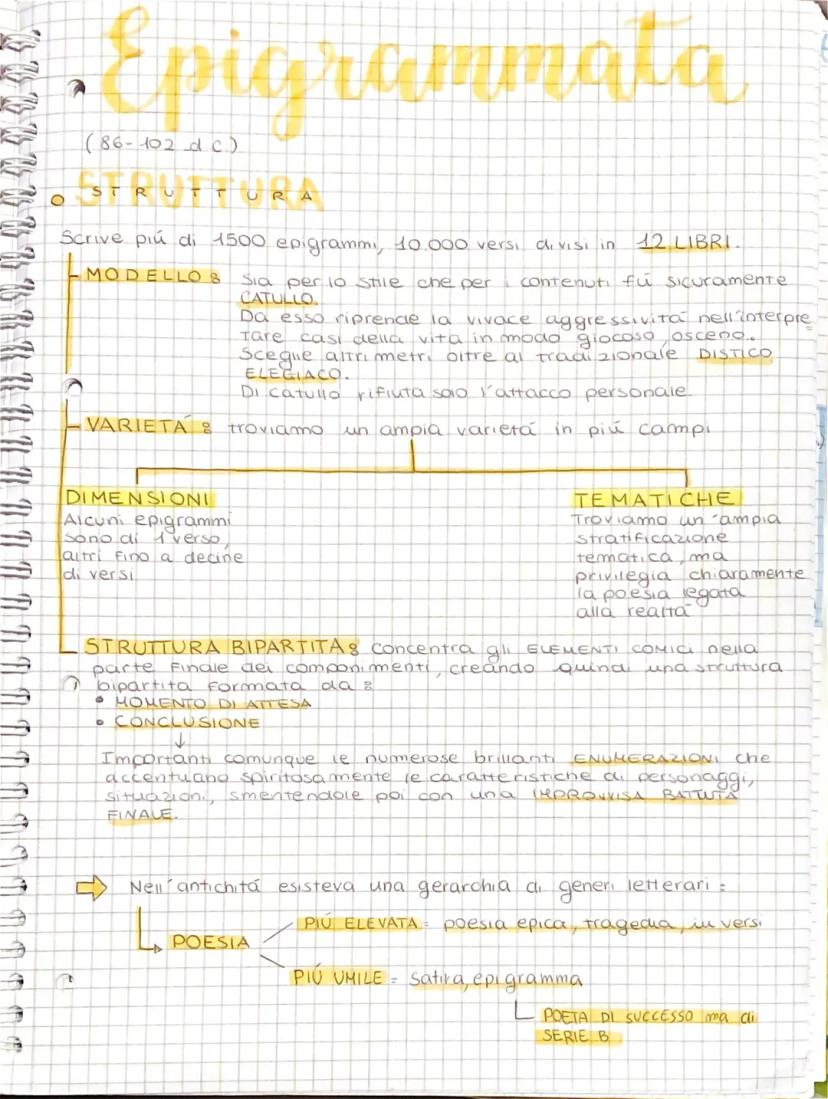 Epigrammata
(86-102 d C.)
STRUTTURA
Scrive piú di 1500 epigrammi, 10.000 versi divisi in 12 LIBRI.
MODELLO: Sia per lo stile che per i contenuti fú sicuramente
CATULLO.
Da esso riprende la vivace aggressivitá nell'interpre
tare casi della vita in modo giocoso, osceno..
Sceglie altri metri oltre al tradizionale DISTICO
ELEGIACO.
Di catullo rifiuta solo l'attacco personale.
VARIETÁ: troviamo un ampia varietá in piú campi
DIMENSIONI
Alcuni epigrammi
sono di 1 verso,
altri fino a decine
di versi
TEMATICHE
Troviamo un'ampia
stratificazione
tematica, ma
privilegia chiaramente
la poesia legata
alla realtá
STRUTTURA BIPARTITA: concentra gli ELEMENTI COMICI nella
parte finale dei componimenti, creando quindi una struttura
bipartita formata da:
• MOMENTO DI ATTESA
• CONCLUSIONE
Importanti comunque le numerose brillanti ENUMERAZIONI che
accentuano spiritosamente le caratteristiche di personaggi,
situazioni, smentendole poi con una IMPROVVISA BATTUTA
FINALE.
Nell'antichitá esisteva una gerarchia di generi letterari:
POESIA
PIÚ ELEVATA = poesia epica, tragedia, in versi
PIÚ UMILE = satira, epigramma
POETA DI SUCCESSO ma di
SERIE B